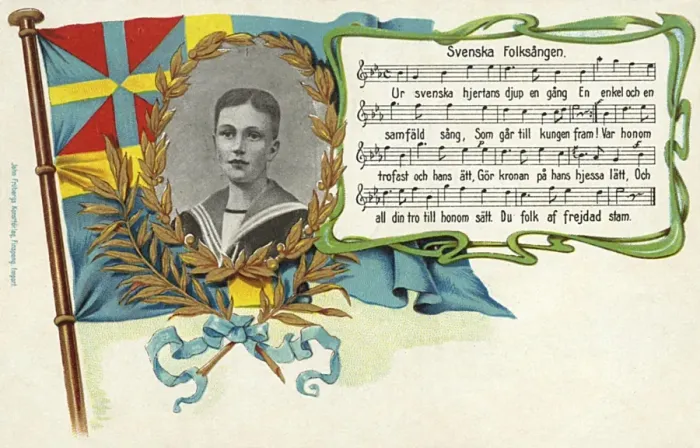 Svenska Folksången.
Ur svenska hjertans djup en gång En enkel och en
samfäld sång, Som går till kungen fram! Var honom
trofast och hans ätt, Gör kronan på hans hjessa lätt, Och
all din tro till honom sätt. Du folk af frejdad stam.
John Fröbergs
Finspong.